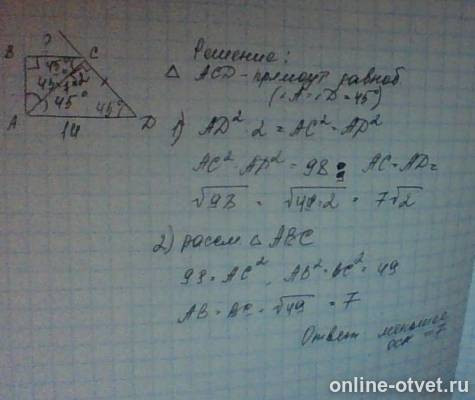 B
C
45°
45°
45°
A
14
D
Решение:
△ ACD - прямоуг равноб
(∠A = ∠D = 45°)
1) AD² : 2 = AC² = AD²
AC² = AD² = 98 ; AC = AD =
√98 = √49·2 = 7√2
2) рассм △ ABC
98 = AC², AB² = BC² = 49
AB = BC = √49 = 7
Ответ меньшее
осн = 7
online-otvet.ru